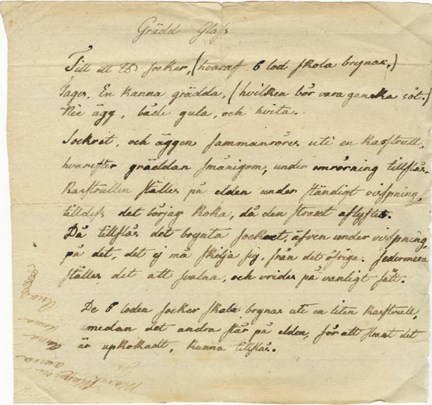 Grädd Glass
Till ett ℔ socker, (hvaraf 6 lod skola brynas,)
tages, En kanna grädda, (hvilken bör vara ganska söt.)
Nie ägg, både gula, och hvita.
Sockret, och äggen sammanröres uti en kastrull,
hvarefter gräddan småningom, under omrörning tillslås.
Kastrullen ställes på elden under ständigt vispning,
tilldess det börjar koka, då den strant aflyftes.
Då tillslås det brynta sockret, äfven under vispning
på det, det ej må skilja sig från det öfriga. Sedermera
ställes det att svalna, och vrides på vanligt sätt.
De 6 loden socker skola brynas uti en liten kastrull,
medan det andra står på elden, för att strant det
är uppkokadt, kunna tillslås.